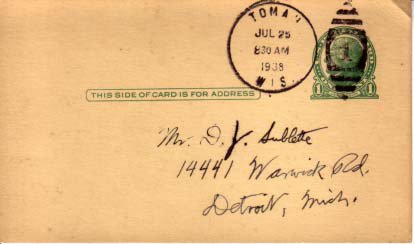 TOMAH
JUL 25
830 AM
1938
WIS.
1
1 1
THIS SIDE OF CARD IS FOR ADDRESS
Mr. D. J. Sublette
14441 Warwick Rd.
Detroit, Mich.